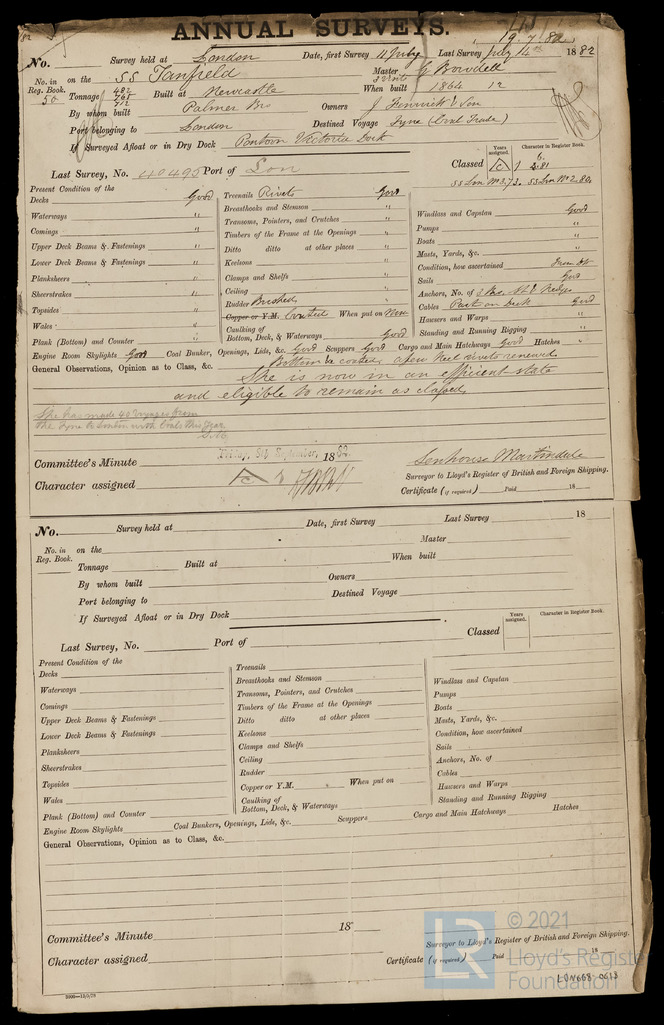 ANNUAL SURVEYS.
19.7.82
No. Survey held at London Date, First Survey 11 July Last Survey July 14th 1882
No. in Reg. Book. 50 on the SS Tanfield Master G Bowdell
Tonnage 487 765 712 Built at Newcastle When built 1864 12
By whom built Palmer Bro Owners J Fenwick & Son
Port belonging to London Destined Voyage Tyne (Coal Trade)
If Surveyed Afloat or in Dry Dock Pontoon Victoria Dock
Last Survey, No. 40495 Port of Lon Classed Years assigned. Character in Register Book.
A 1 6.81
SS Lon No 3.73. SS Lon No 2.80
Present Condition of the
Decks Good
Waterways "
Comings "
Upper Deck Beams & Fastenings "
Lower Deck Beams & Fastenings "
Planksheers "
Sheerstrakes "
Topsides "
Wales "
Plank (Bottom) and Counter "
Treenails Rivets Good
Breasthooks and Stemson "
Transoms, Pointers, and Crutches "
Timbers of the Frame at the Openings "
Ditto ditto at other places "
Keelsons "
Clamps and Shelfs "
Ceiling "
Rudder Bushed "
Copper or Y.M. Coated When put on Now
Caulking of Bottom, Deck, & Waterways Good
Windlass and Capstan Good
Pumps "
Boats "
Masts, Yards, &c. "
Condition, how ascertained From Dk
Sails Good
Anchors, No. of
Cables Part on Deck Good
Hawsers and Warps "
Standing and Running Rigging "
Engine Room Skylights Good Coal Bunkers, Openings, Lids, &c. Good Scuppers Good Cargo and Main Hatchways Good Hatches "
General Observations, Opinion as to Class, &c. Bottom coated, a few keel rivets renewed
She is now in an efficient state
and eligible to remain as classed,
She has made 40 voyages from
the Tyne to London with Coals this Year
Committee's Minute Friday, 8th September, 1882.
Character assigned A 1
Senhouse Martindale
Surveyor to Lloyd's Register of British and Foreign Shipping.
Certificate (if required) Paid 18
No. Survey held at Date, First Survey Last Survey 18
No. in Reg. Book. on the Master
Tonnage Built at When built
By whom built Owners
Port belonging to Destined Voyage
If Surveyed Afloat or in Dry Dock
Last Survey, No. Port of Classed Years assigned. Character in Register Book.
Present Condition of the
Decks
Waterways
Comings
Upper Deck Beams & Fastenings
Lower Deck Beams & Fastenings
Planksheers
Sheerstrakes
Topsides
Wales
Plank (Bottom) and Counter
Treenails
Breasthooks and Stemson
Transoms, Pointers, and Crutches
Timbers of the Frame at the Openings
Ditto ditto at other places
Keelsons
Clamps and Shelfs
Ceiling
Rudder
Copper or Y.M. When put on
Caulking of Bottom, Deck, & Waterways
Windlass and Capstan
Pumps
Boats
Masts, Yards, &c.
Condition, how ascertained
Sails
Anchors, No. of
Cables
Hawsers and Warps
Standing and Running Rigging
Engine Room Skylights Coal Bunkers, Openings, Lids, &c. Scuppers Cargo and Main Hatchways Hatches
General Observations, Opinion as to Class, &c.
Committee's Minute 18
Character assigned
Surveyor to Lloyd's Register of British and Foreign Shipping.
Certificate (if required) Paid 18
LR © 2021
Lloyd's Register
Foundation
LON668-0613